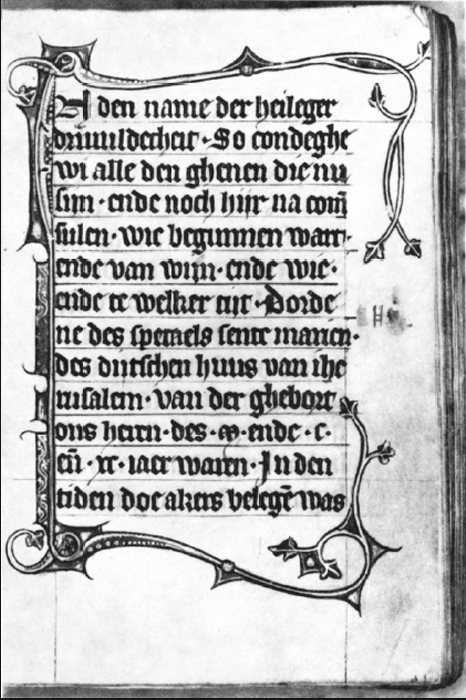 In den name der heileger
driuuildecheit · So condeghe
wi alle den ghenen die nu
siin · ende noch hiir na com̄
sulen · wie begunnen wart·
ende van wim · ende wie ·
ende te welker tijt · Dorde
ne des spetaels sente marien·
des duitschen huus van ihe
rusalem · van der ghebort
ons heren · des · m · ende · c ·
eñ · xc · iaer waren · In den
tiden doe akers belegē was